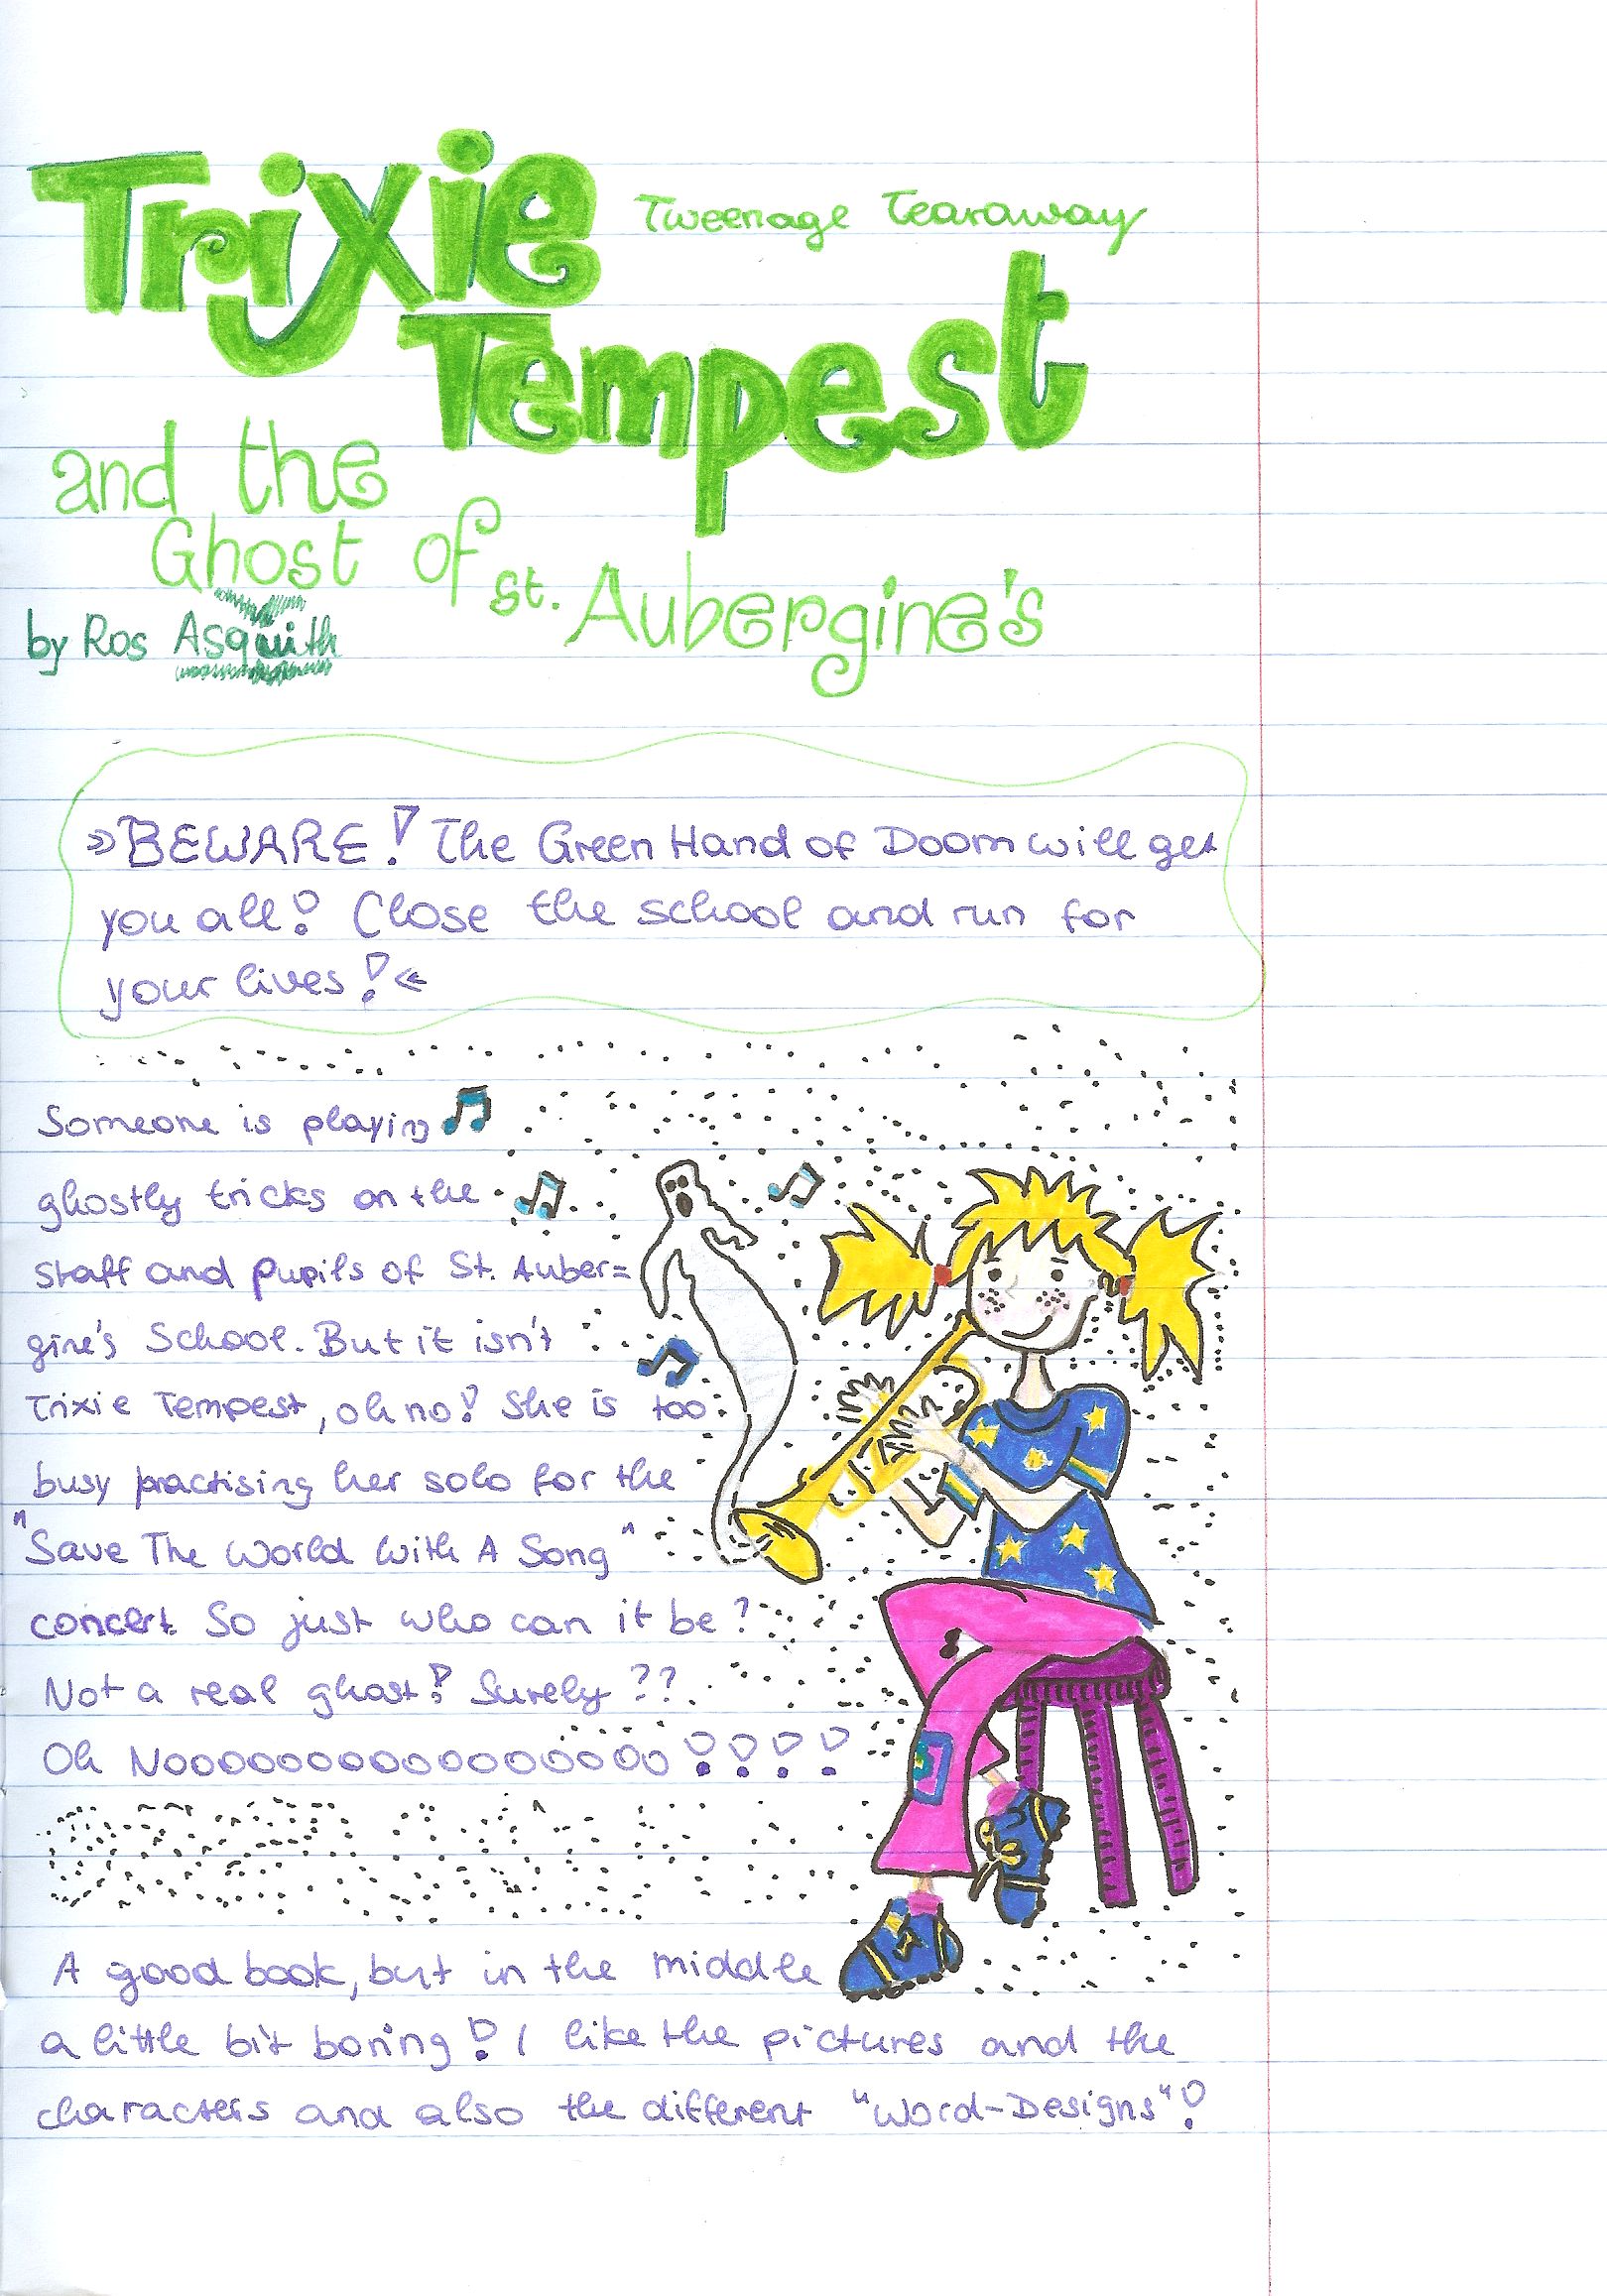 Trixie
Tweenage Tearaway
Tempest
and the
Ghost of St. Aubergine's
by Ros Asquith
»BEWARE! The Green Hand of Doom will get
you all! Close the school and run for
your lives!«
Someone is playing
ghostly tricks on the
staff and pupils of St. Auber=
gine's School. But it isn't
Trixie Tempest, oh no! She is too
busy practising her solo for the
"Save The World With A Song"
concert. So just who can it be?
Not a real ghost! Surely??
Oh Nooooooooooooooooo!!!!
A good book, but in the middle
a little bit boring! I like the pictures and the
characters and also the different "Word-Designs"!